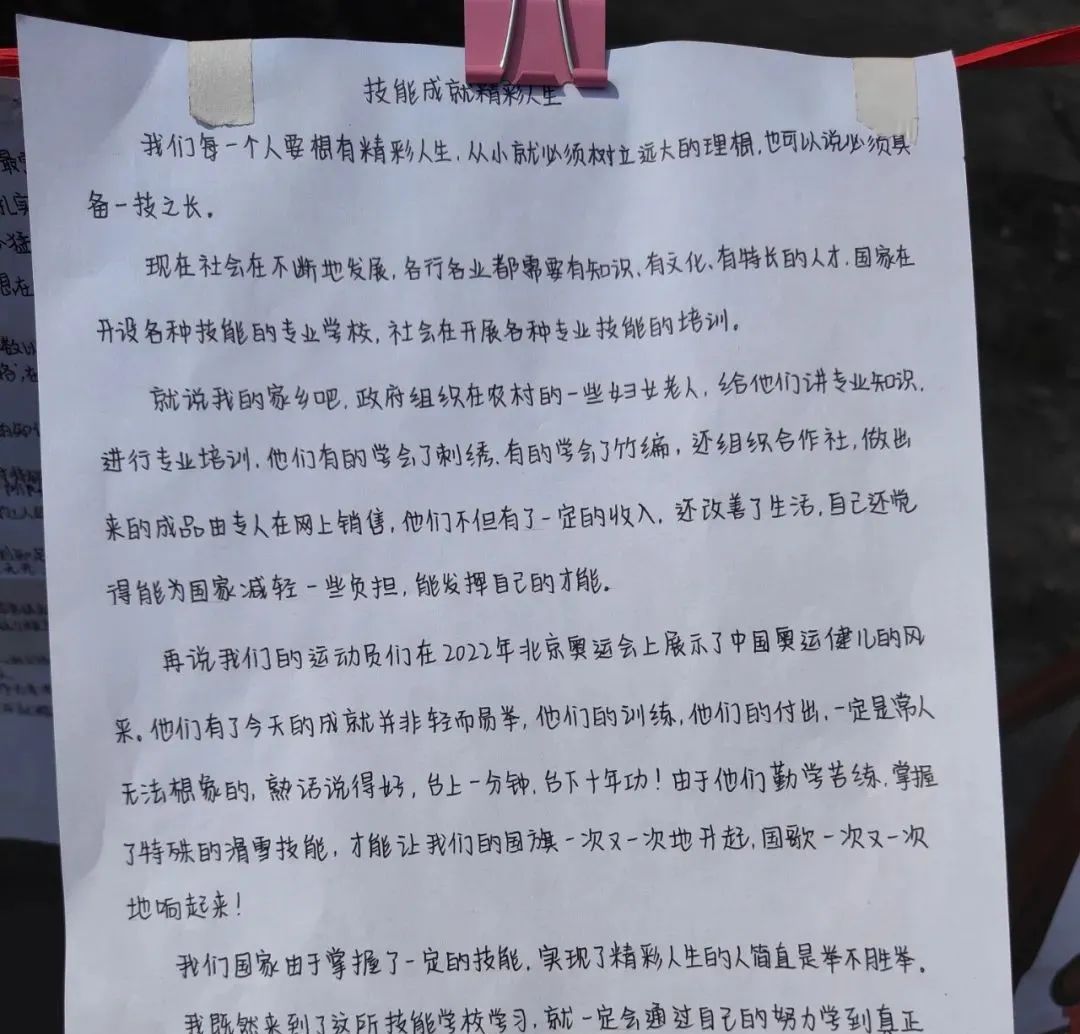 技能成就精彩人生
我们每一个人要想有精彩人生，从小就必须树立远大的理想，也可以说必须具
备一技之长。
现在社会在不断地发展，各行各业都需要有知识、有文化、有特长的人才，国家在
开设各种技能的专业学校，社会在开展各种专业技能的培训。
就说我的家乡吧，政府组织在农村的一些妇女老人，给他们讲专业知识，
进行专业培训，他们有的学会了刺绣，有的学会了竹编，还组织合作社，做出
来的成品由专人在网上销售，他们不但有了一定的收入，还改善了生活，自己还觉
得能为国家减轻一些负担，能发挥自己的才能。
再说我们的运动员们在2022年北京奥运会上展示了中国奥运健儿的风
采。他们有了今天的成就并非轻而易举，他们的训练，他们的付出，一定是常人
无法想象的，熟话说得好，台上一分钟，台下十年功！由于他们勤学苦练，掌握
了特殊的滑雪技能，才能让我们的国旗一次又一次地升起，国歌一次又一次
地响起来！
我们国家由于掌握了一定的技能，实现了精彩人生的人简直是举不胜举。
我既然来到了这所技能学校学习，就一定会通过自己的努力学到真正